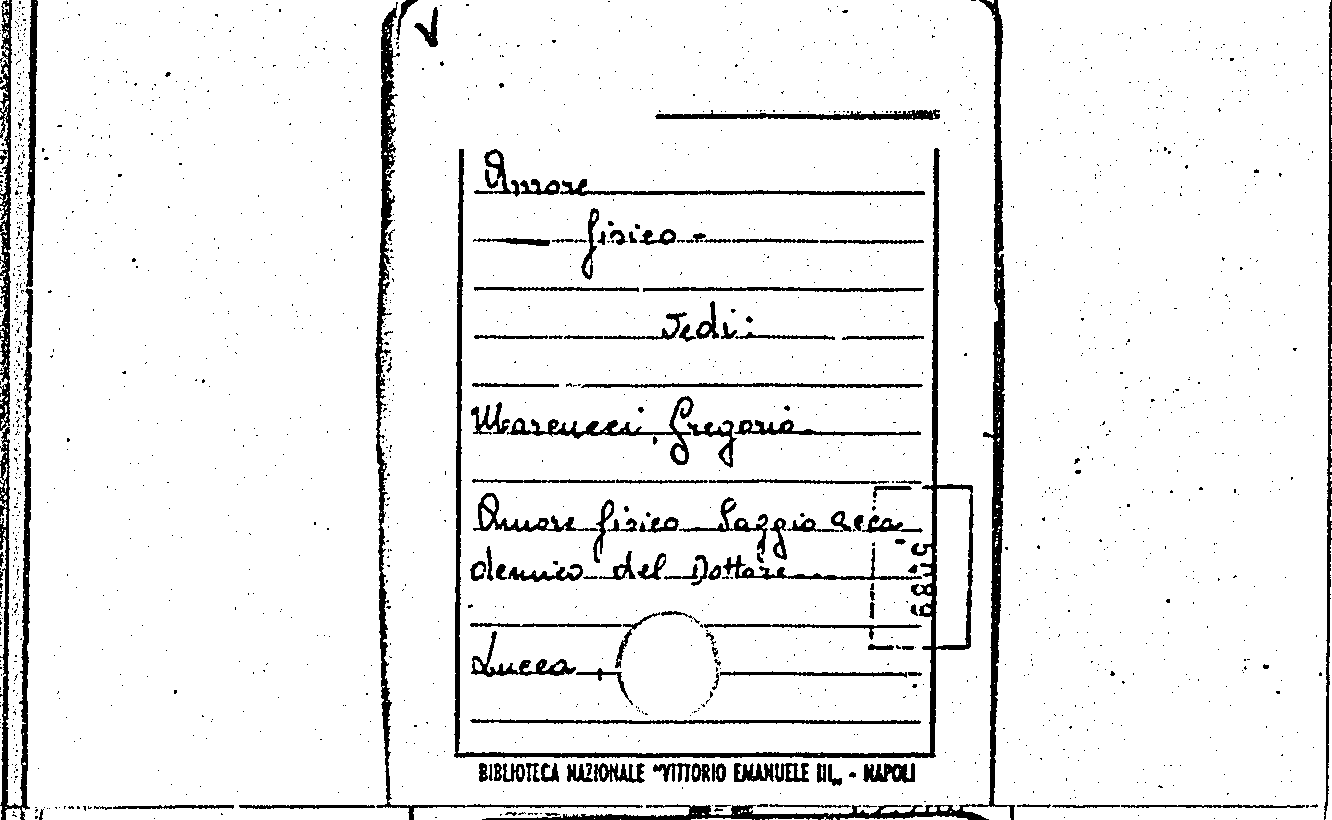 Amore
fisico -
Vedi:
Marcucci, Gregorio
Amore fisico. Saggio acca
demico del Dottore
Lucca,
BIBLIOTECA NAZIONALE "VITTORIO EMANUELE III„ - NAPOLI